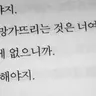 야지.
망가뜨리는 것은 너여
게 없으니까.
해야지.